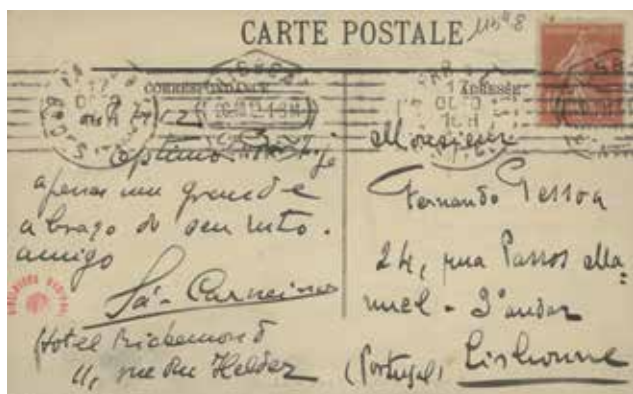 CARTE POSTALE
CORRESPONDANCE
ADRESSE
apenas um grande
abraço do seu mto.
amigo
Sá-Carneiro
Hotel Richemond
11, rue du Helder
Monsieur
Fernando Pessoa
24, rua Passos Ma=
nuel - 3º andar
(Portugal) Lisbonne